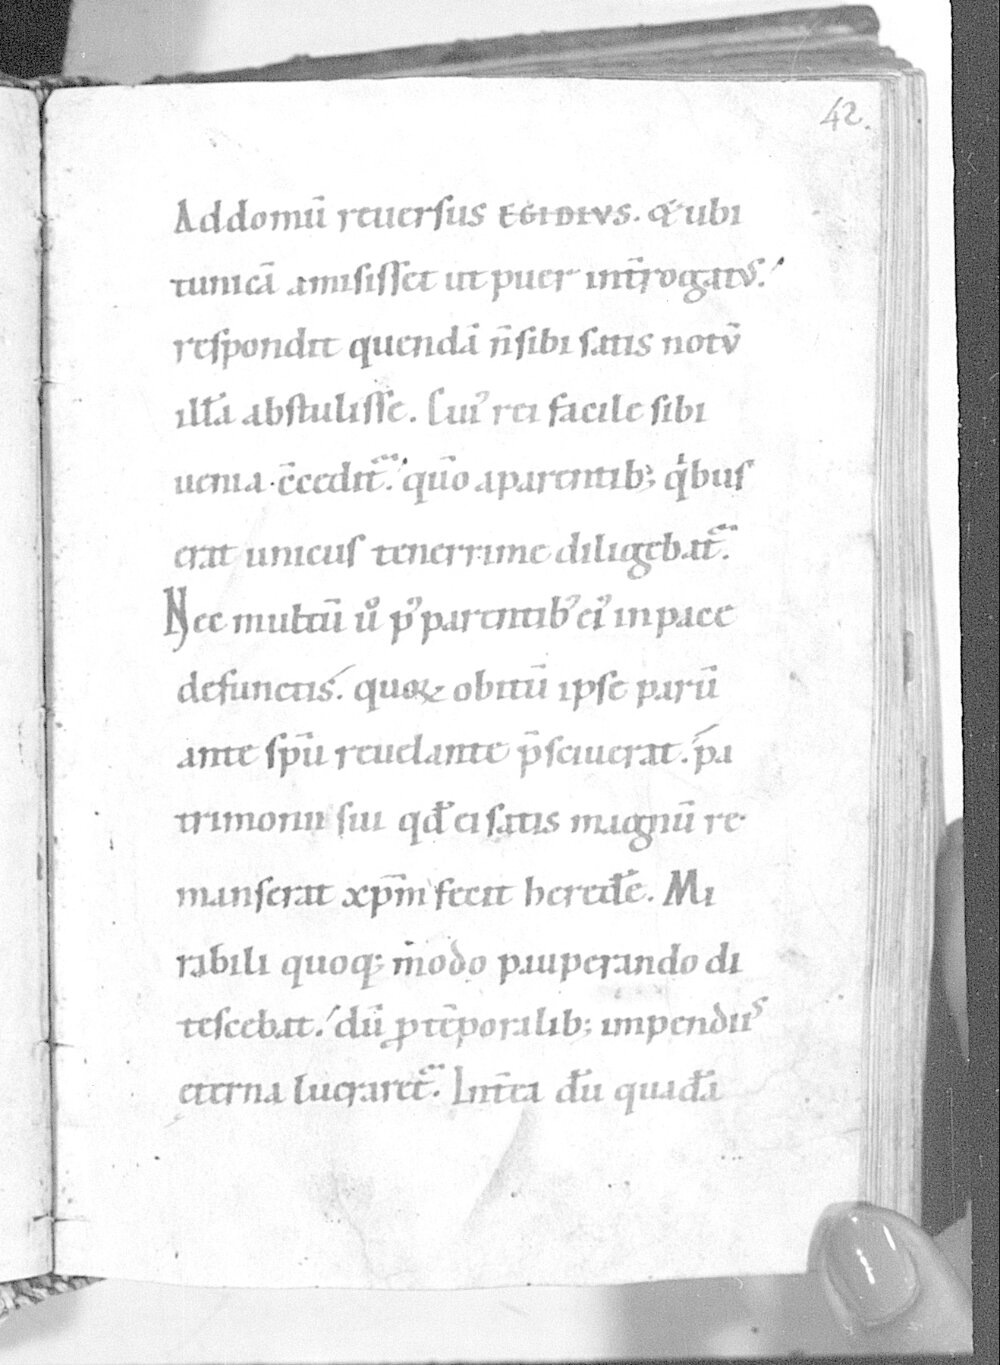 42.
Addomū reuersus EGIDIVS. & ubi
tunicā amisisset ut puer int̄rogatus.
respondit quendā n̄ sibi satis notū
illā abstulisse. Cui' rei facile sibi
uenia c̄cedit. quō a parentib; qͥbus
erat unicus tenerrime diligebat.
Nec multū ů p' parentib' ei' in pace
defunctis. quoꝝ obitū ipse parū
ante sp̄u reuelante p̄sciuerat. pa
trimonii sui qđ ei satis magnū re
manserat xp̄m fecit heredē. Mi
rabili quoq; modo pauperando di
tescebat. dū ꝓ tēporalib; impendiis
eterna lucraret. Int̄ea dū quadā